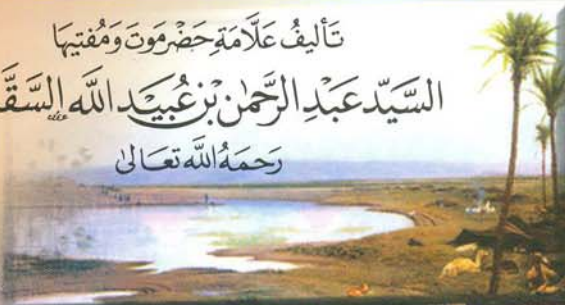 تَأليفُ عَلَّامَةِ حَضْرَمَوتَ وَمُفتيهَا
السَّيِّد عَبْدِ الرَّحمٰن بْن عُبَيْد اللَّه
رَحمَهُ اللَّه تعَالىٰ